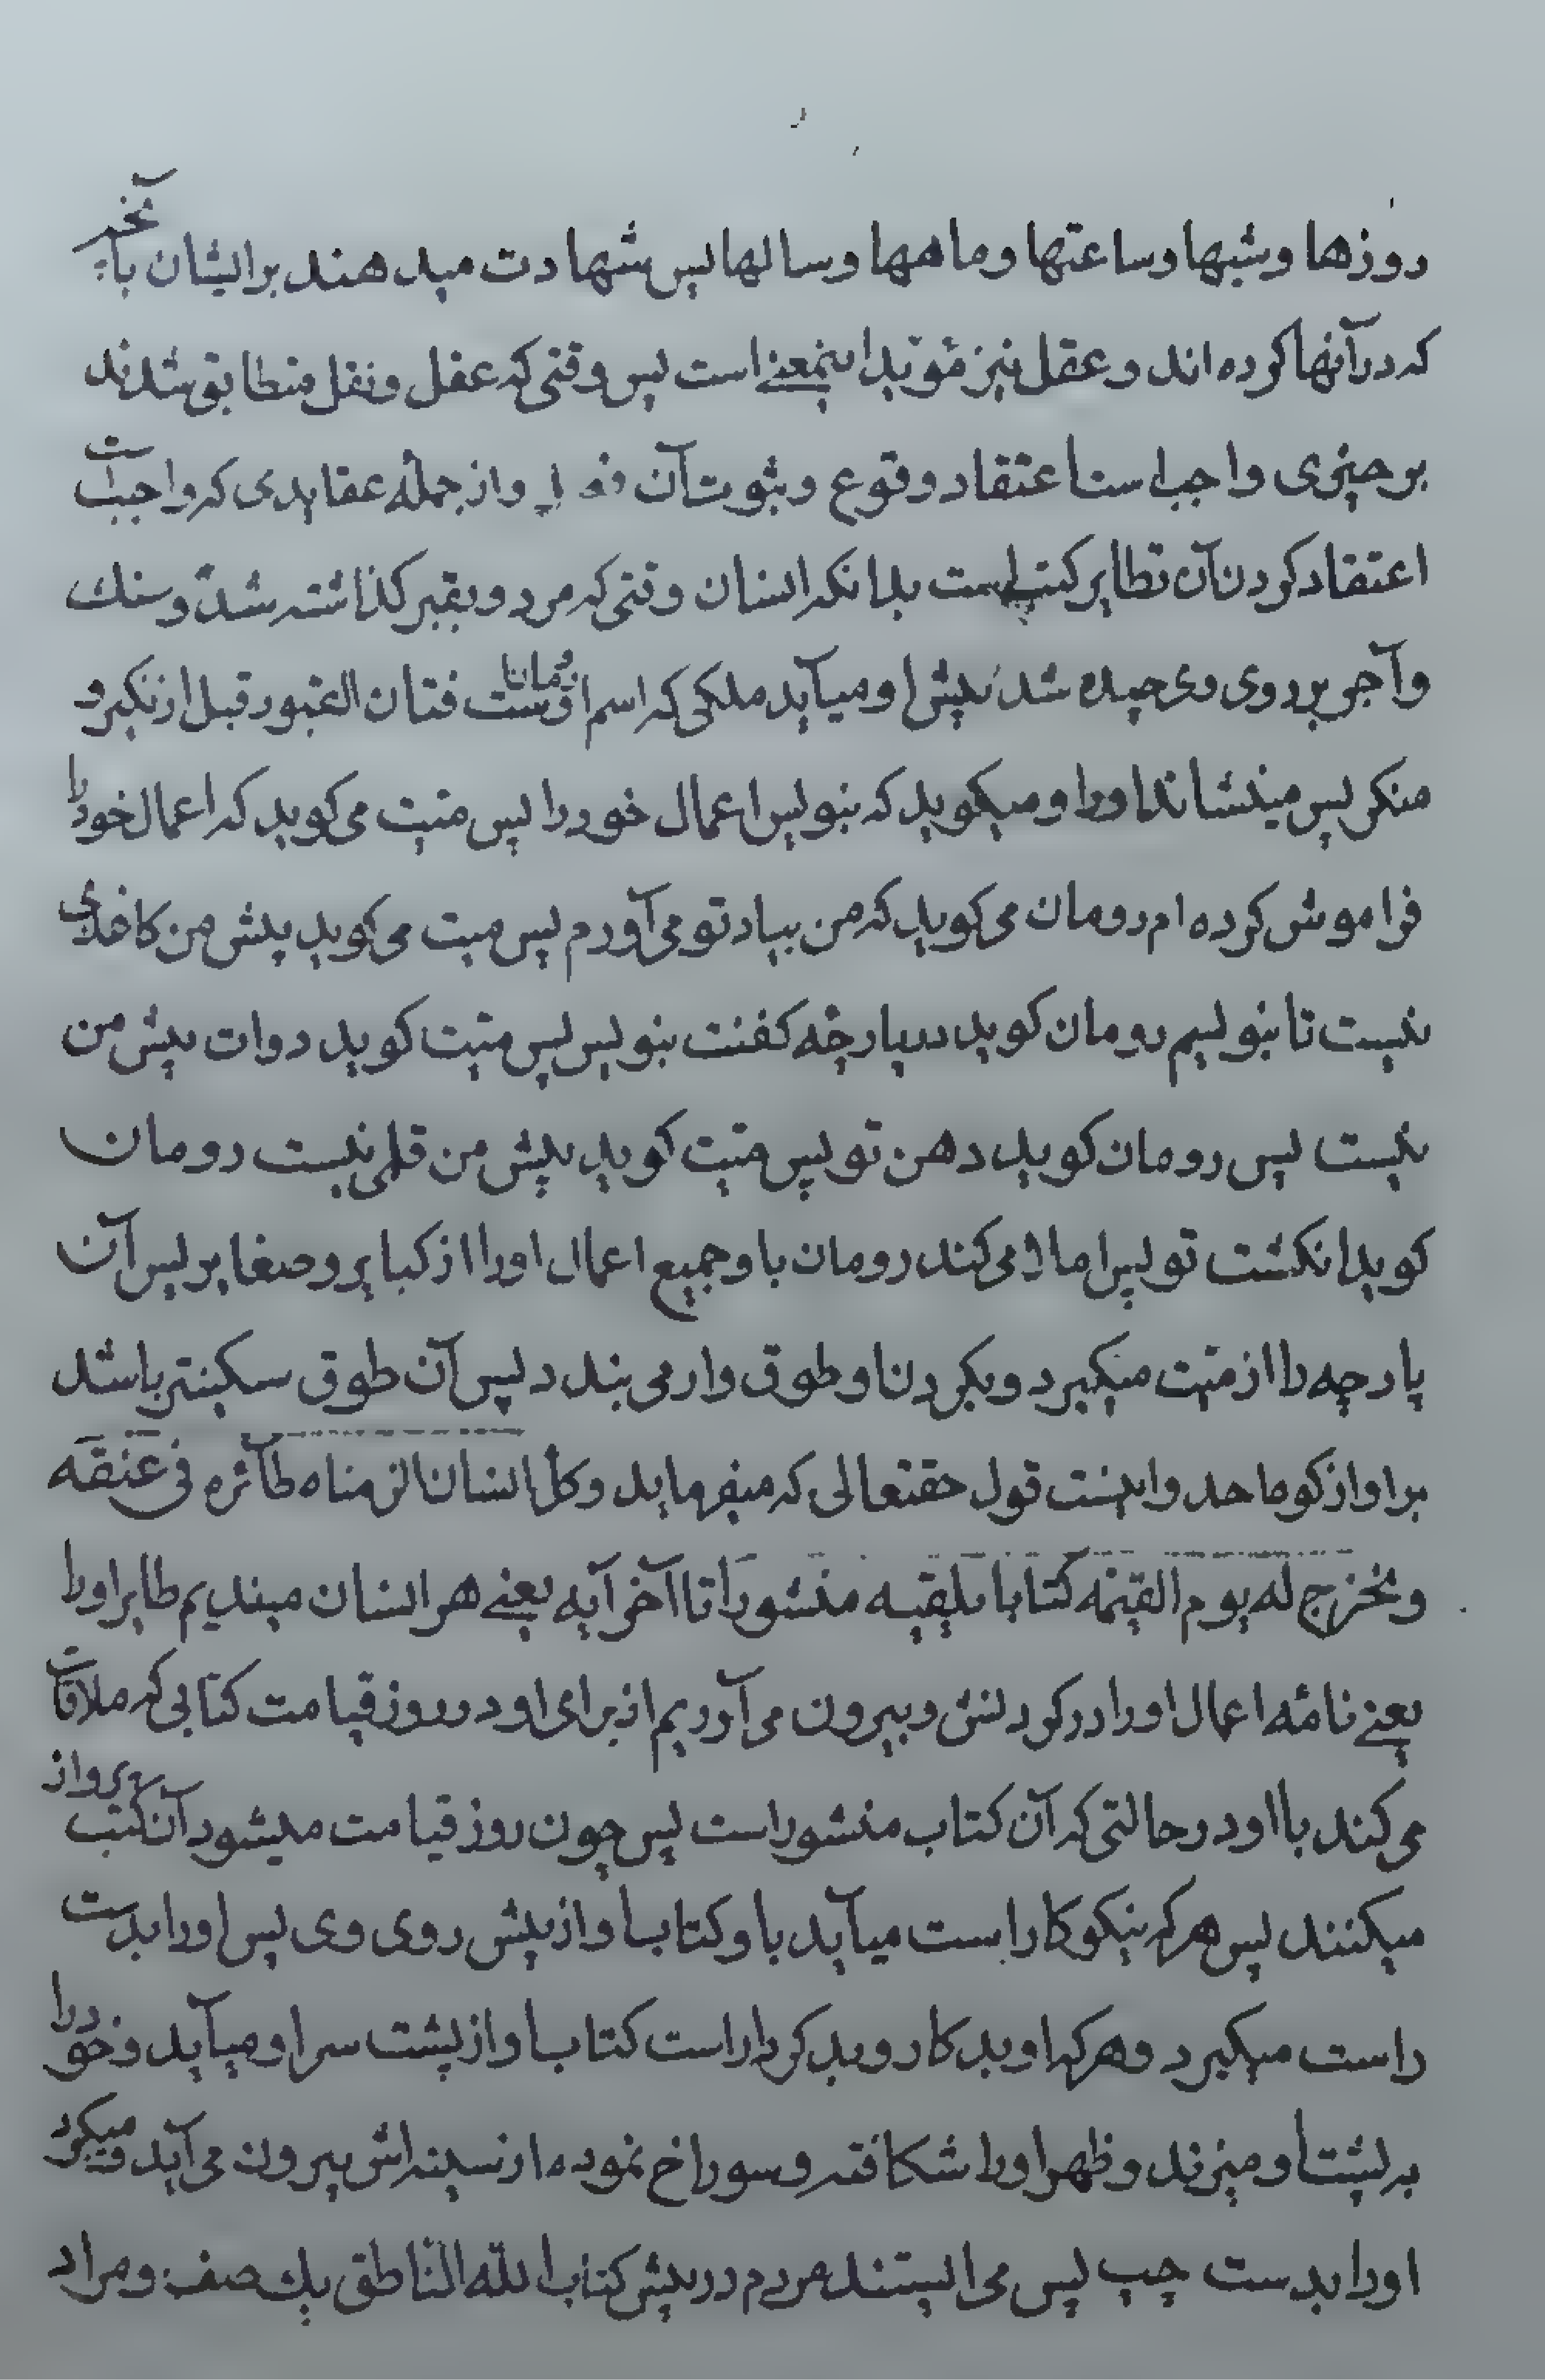 روزها و شبها و ساعتها و ماهها و سالها پس شهادت میدهند بر ایشان بآنچه
که در آنها کرده اند و عقل نیز مؤید اینمعنی است پس وقتی که عقل و نقل متطابق شدند
بر چیزی واجب است اعتقاد وقوع و ثبوت آن و از جمله عقایدی که واجب است
اعتقاد کردن آن تطایر کتب است بدانکه انسان وقتی که مرد و بقبر گذاشته شد و سنگ
و آجر بر روی وی چیده شد پیش او میآید ملکی که اسم او رومانست فتان القبور قبل از نکیر و
منکر پس مینشاند او را و میگوید که بنویس اعمال خود را پس میت می گوید که اعمال خود را
فراموش کرده ام رومان می گوید که من بیاد تو می آورم پس میت می گوید پیش من کاغذی
نیست تا بنویسم رومان گوید در پارچه کفنت بنویس پس میت گوید دوات پیش من
نیست پس رومان گوید دهن تو پس میت گوید پیش من قلم نیست رومان
گوید انگشت تو پس املا می کند رومان باو جمیع اعمال او را از کبایر و صغایر پس آن
پارچه را از میت میگیرد و بگردن او طوق وار می بندد پس آن طوق سنگینتر باشد
بر او از کوه احد و اینست قول حقتعالی که میفرماید و کل انسان الزمناه طآئره فی عنقه
و نخرج له یوم القیمه کتابا یلقیه منشورا تا آخر آیه یعنی هر انسان میبندیم طایر او را
یعنی نامه اعمال او را در گردنش و بیرون می آوریم از برای او در روز قیامت کتابی که ملاقات
می کند با او در حالتی که آن کتاب منشور است پس چون روز قیامت میشود آن کتب پرواز
میکنند پس هر که نیکوکار است میآید باو کتاب او از پیش روی وی پس او را بدست
راست میگیرد و هر که او بدکار و بدکردار است کتاب او از پشت سر او میآید و خود را
بر پشت او میزند و ظهر او را شکافته و سوراخ نموده از سینه اش بیرون می آید و میگیرد
او را بدست چپ پس می ایستند مردم در پیش کتاب الله الناطق یک صف و مراد